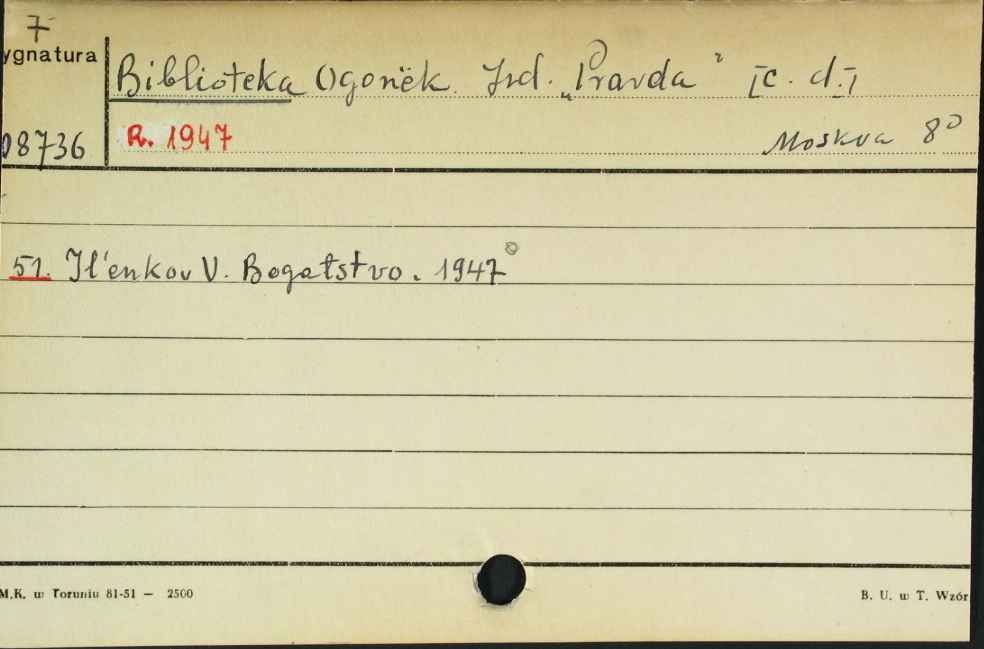 7
ygnatura
Biblioteka Ogonëk. Izd. „Pravda" [c. d.]
08736
R. 1947
Moskva 8°
51. Il'enkov V. Bogatstvo. 1947
M.K. w Toruniu 81-51 — 2500
B. U. w T. Wzór